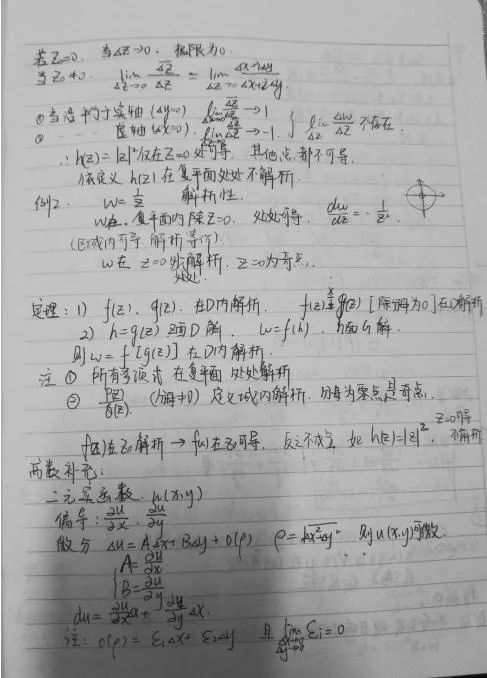 若Z₀=0, 当ΔZ→0, 极限为0.
当Z₀≠0. lim_{ΔZ→0} \overline{ΔZ}/ΔZ = lim_{ΔZ→0} (Δx-iΔy)/(Δx+iΔy).
① 当沿平行于实轴 (Δy=0) lim_{ΔZ→0} \overline{ΔZ}/ΔZ → 1
② 虚轴 (Δx=0). lim_{ΔZ→0} \overline{ΔZ}/ΔZ → -1. } lim_{ΔZ} Δw/ΔZ 不存在.
∴ h(z)=|z|²仅在Z=0处可导. 其他点都不可导.
依定义 h(z) 在复平面处处不解析.
例2. W=1/z 解析性.
w在复平面内除Z=0. 处处可导. dw/dz=-1/z².
(区域内可导,解析等价).
w在z=0外解析. z=0为奇点.
处处.
定理: 1) f(z). g(z). 在D内解析. f(z) g(z) [除分母为0] 在D解析
2) h=g(z) Z面D解. w=f(h). h面G解.
则w=f[g(z)] 在D内解析.
注 ① 所有多项式 在复平面处处解析
② P(z)/Q(z). (分母≠0) 定义域内解析. 分母为零点是奇点.
f(z)在Z₀解析 → f(z)在Z₀可导. 反之不成立 如 h(z)=|z|². z=0可导 不解析
高数补充:
二元实函数. u(x,y)
偏导: ∂u/∂x. ∂u/∂y
微分 Δu=AΔx+BΔy+o(ρ) ρ=√(Δx²+Δy²) 则u(x,y)可微.
{ A=∂u/∂x
B=∂u/∂y
du=∂u/∂x Δx+∂u/∂y Δx.
注: o(ρ)=ε₁Δx+ε₂Δy 且 lim_{Δx→0 Δy→0} εi=0